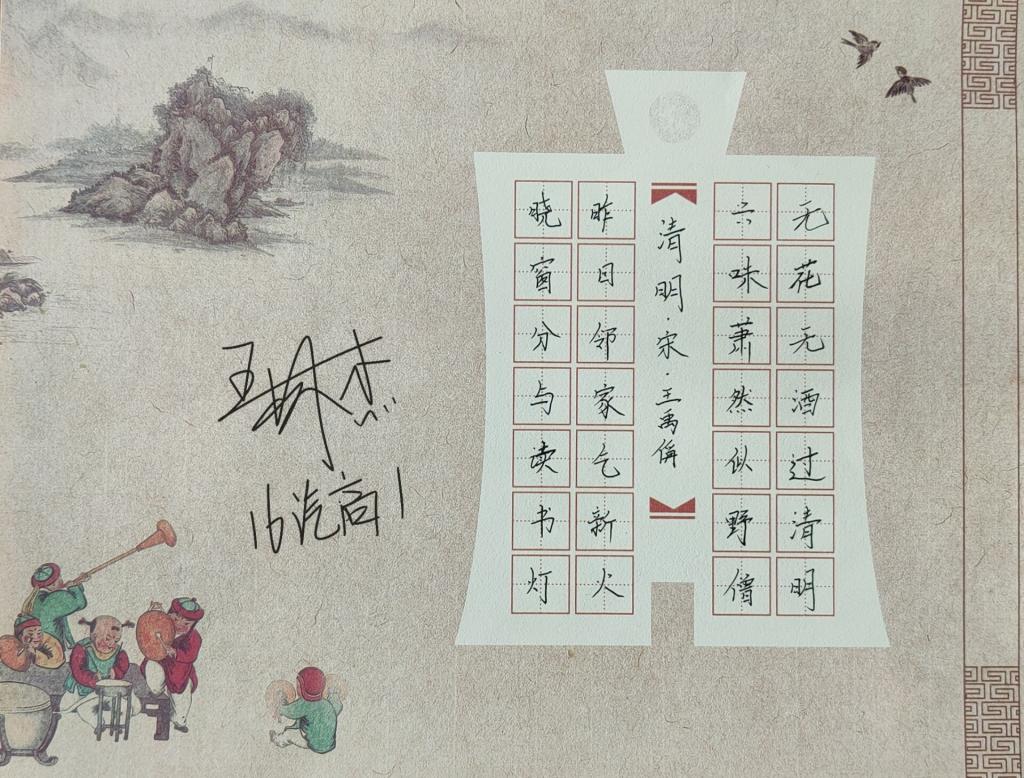 无花无酒过清明
兴味萧然似野僧
清明·宋·王禹偁
昨日邻家乞新火
晓窗分与读书灯
王琳杰
16汽高1